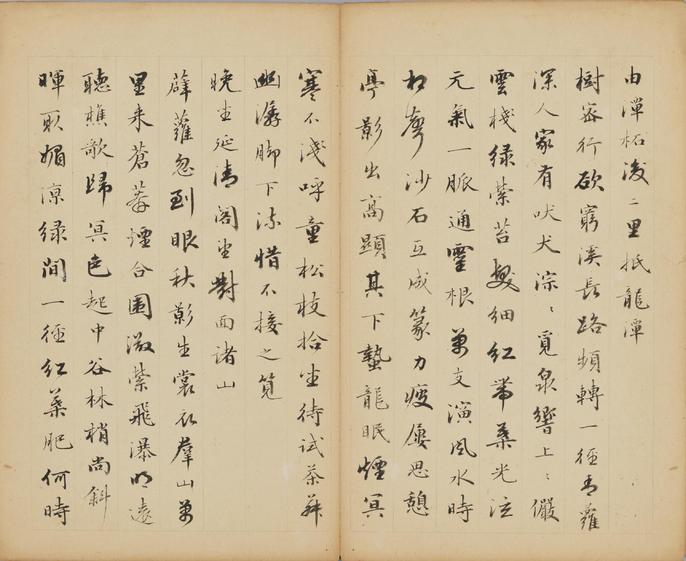 由潭柘後二里抵龍潭
樹密行欲窮溪長路頻轉一徑青蘿
深人家有吠犬淙〻覓泉響上〻儼
雲棧綠縈苔髮細紅帶葉光泫
元氣一脈通靈根萬支演風水時
相薄沙石互成篆力疲屢思憩
亭影出高顯其下蟄龍眠煙冥
寒不淺呼童松枝拾坐待試茶荈
幽潺腳下流惜不接之筧
晚坐延清閣坐對面諸山
薜蘿忽到眼秋影生裳衣羣山萬
里來蒼莽煙合圍激縈飛瀑明遠
聽樵歌歸冥色起中谷林梢尚斜
暉取媚涼綠間一徑紅葉肥何時